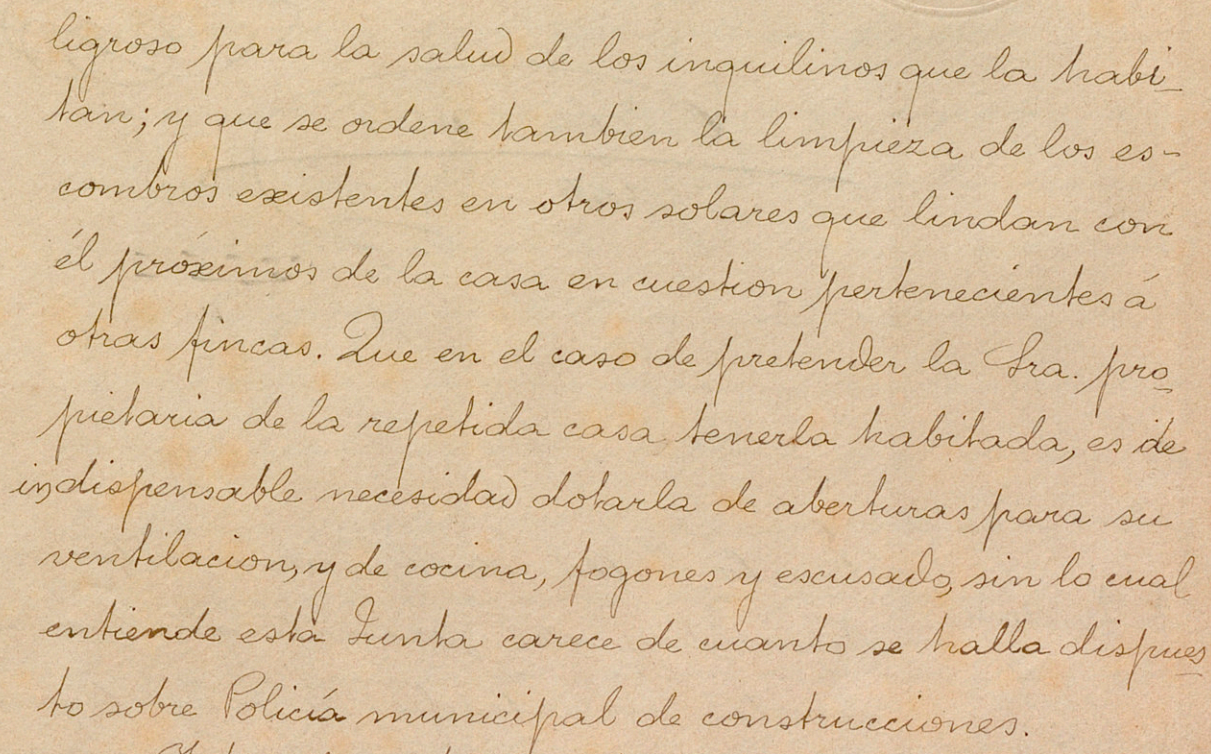 ligroso para la salud de los inquilinos que la habi-
tan; y que se ordene tambien la limpieza de los es-
combros existentes en otros solares que lindan con
él próximos de la casa en cuestion pertenecientes á
otras fincas. Que en el caso de pretender la Sra. pro-
pietaria de la repetida casa tenerla habitada, es de
indispensable necesidad dotarla de aberturas para su
ventilacion, y de cocina, fogones y escusado, sin lo cual
entiende esta Junta carece de cuanto se halla dispues
to sobre Policía municipal de construcciones.